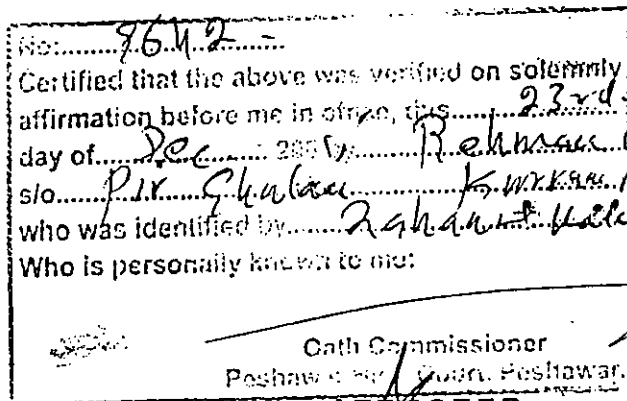 No:.........9642-
Certified that the above was verified on solemnly
affirmation before me in office, this..........23rd
day of......Dec...... 200 by...... Rehman
s/o......Pir Ghulam
who was identified by........
Who is personally known to me:
Oath Commissioner
Peshawar High Court, Peshawar.